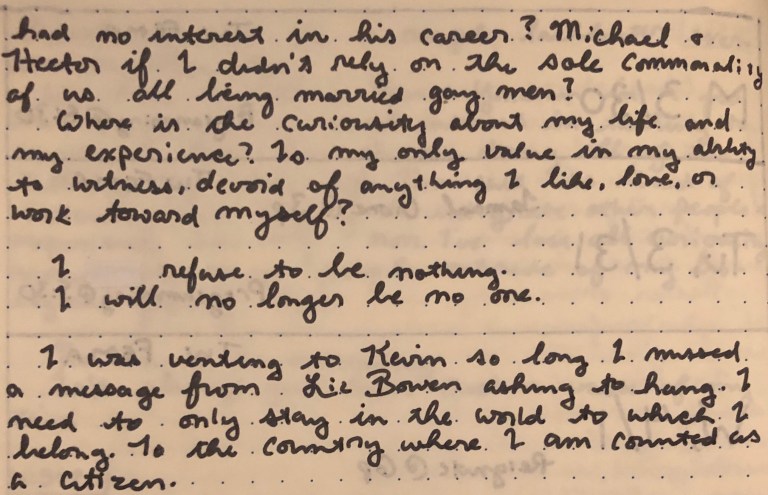 had no interest in his career? Michael &
Hector if I didn't rely on the sole commonality
of us all being married gay men?
Where is the curiousity about my life and
my experience? Is my only value in my ability
to witness, devoid of anything I like, love, or
work toward myself?
I refuse to be nothing.
I will no longer be no one.
I was venting to Kevin so long I missed
a message from Liz Bowen asking to hang. I
need to only stay in the world to which I
belong. To the country where I am counted as
a citizen.
M 3/30
Tu 3/31